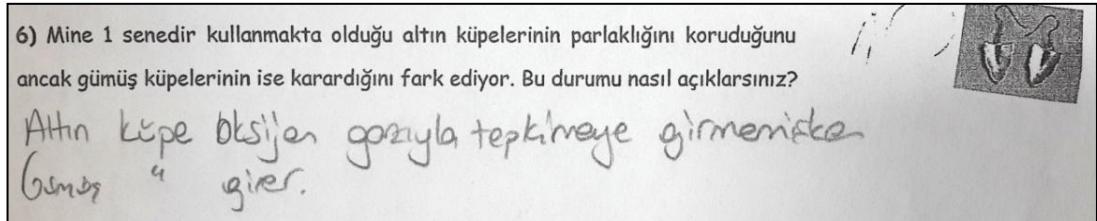 6) Mine 1 senedir kullanmakta olduğu altın küpelerinin parlaklığını koruduğunu
ancak gümüş küpelerinin ise karardığını fark ediyor. Bu durumu nasıl açıklarsınız?
Altın küpe oksijen gazıyla tepkimeye girmemişken
Gümüş " girer.